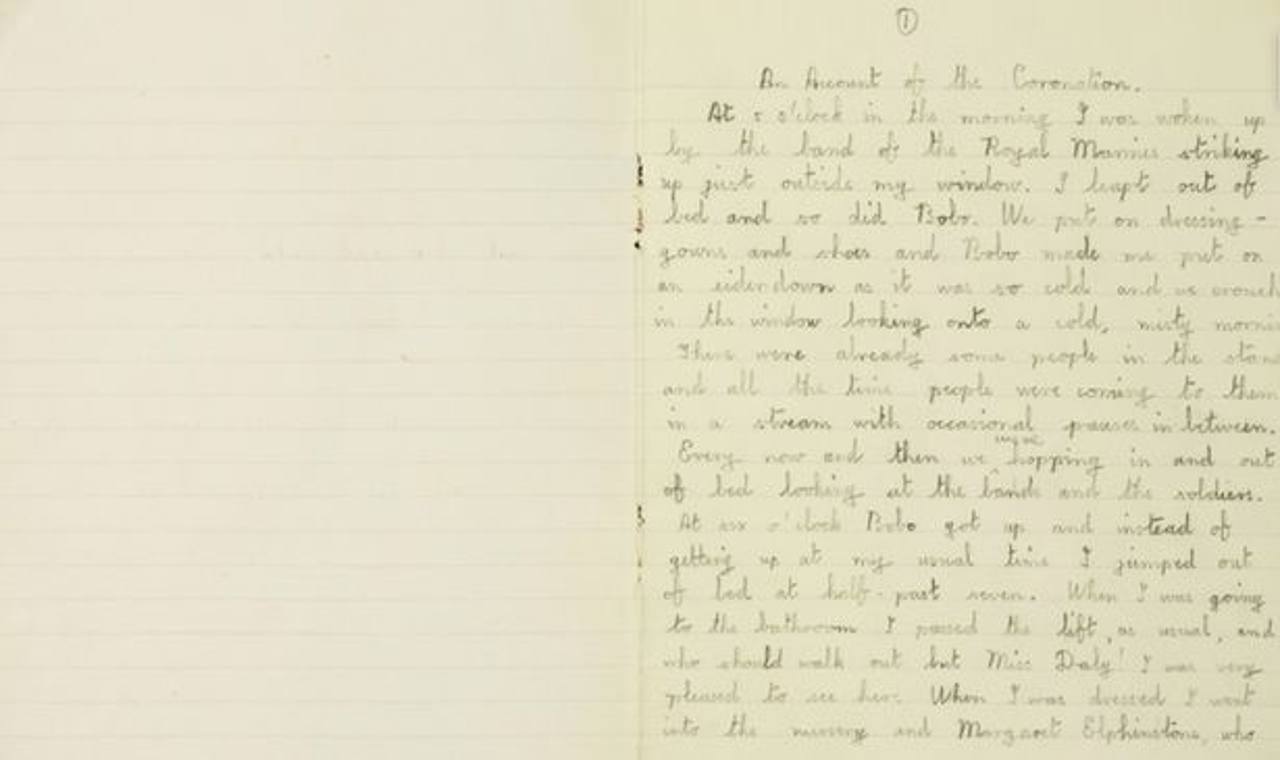 1
An Account of the Coronation.
At 5 o'clock in the morning I was woken up
by the band of the Royal Marines striking
up just outside my window. I leapt out of
bed and so did Bobo. We put on dressing-
gowns and shoes and Bobo made me put on
an eiderdown as it was so cold and we crouch
in the window looking onto a cold, misty mornin
There were already some people in the stand
and all the time people were coming to them
in a stream with occasional pauses in between.
Every now and then we were hopping in and out
of bed looking at the bands and the soldiers.
At six o'clock Bobo got up and instead of
getting up at my usual time I jumped out
of bed at half-past seven. When I was going
to the bathroom I passed the lift, as usual, and
who should walk out but Miss Daly! I was very
pleased to see her. When I was dressed I went
into the nursery and Margaret Elphinstone, who